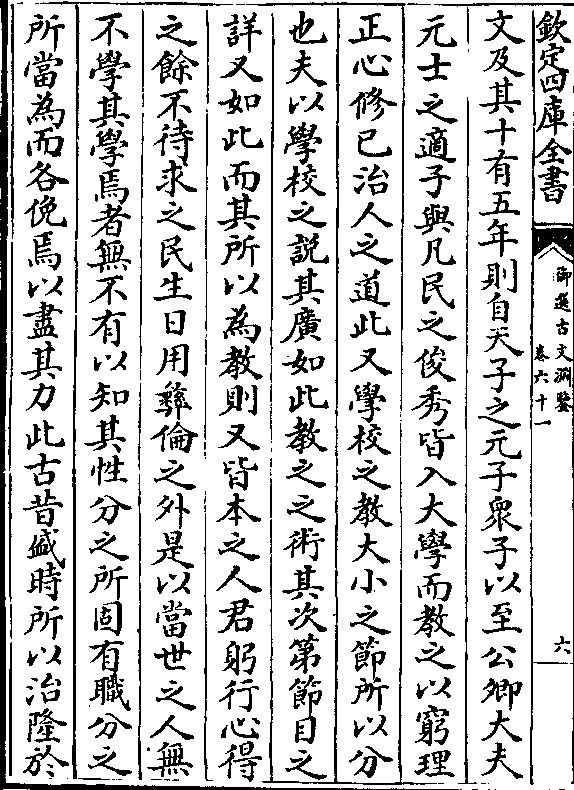 欽定四庫全書
御選古文淵鑒
卷六十一
六
文及其十有五年則自天子之元子衆子以至公卿大夫
元士之適子與凡民之俊秀皆入大學而教之以窮理
正心修已治人之道此又學校之教大小之節所以分
也夫以學校之説其廣如此教之之術其次第節目之
詳又如此而其所以為教則又皆本之人君躬行心得
之餘不待求之民生日用彝倫之外是以當世之人無
不學其學焉者無不有以知其性分之所固有職分之
所當為而各俛焉以盡其力此古昔盛時所以治隆於